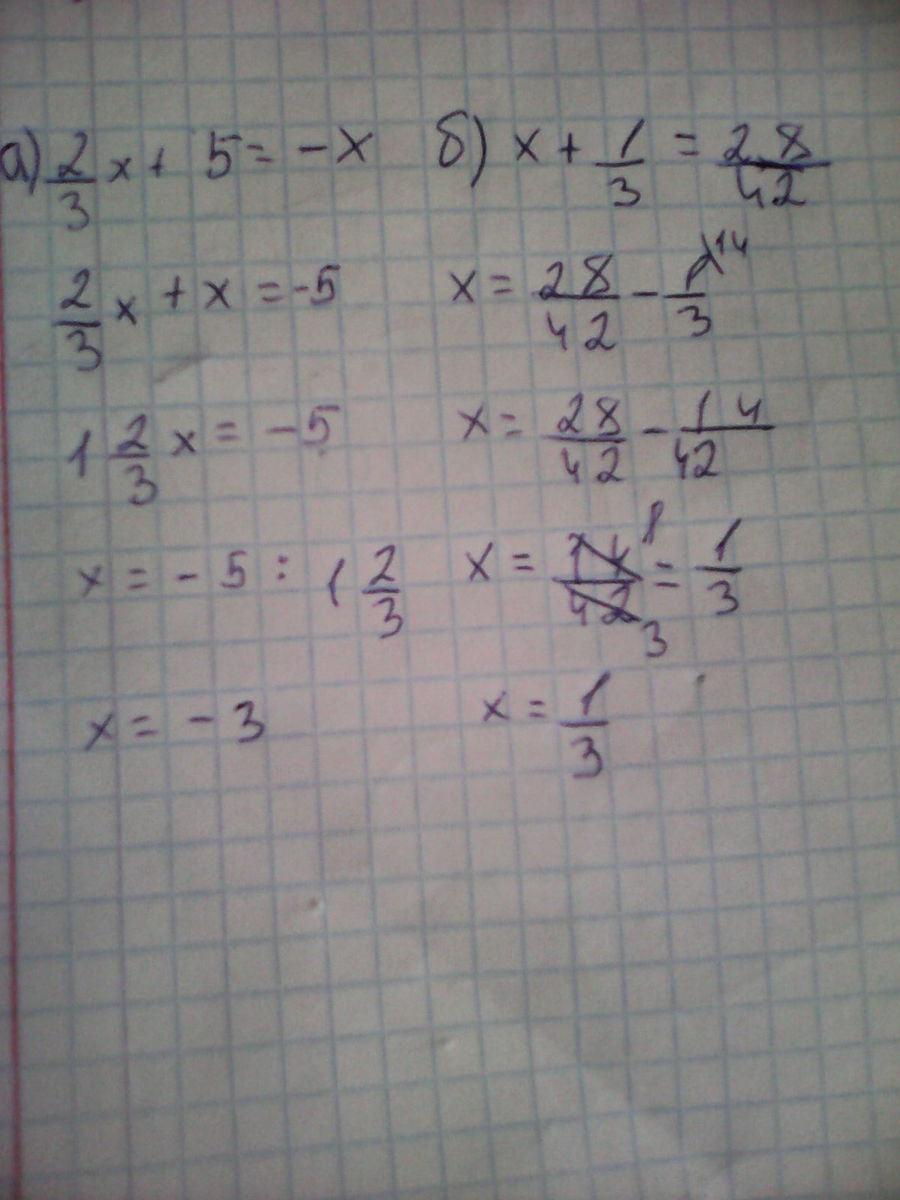 а) 2/3 x + 5 = -x
2/3 x + x = -5
1 2/3 x = -5
x = -5 : 1 2/3
x = -3
б) x + 1/3 = 28/42
x = 28/42 - 1/3 14
x = 28/42 - 14/42
x = 14/42 1 3 = 1/3
x = 1/3